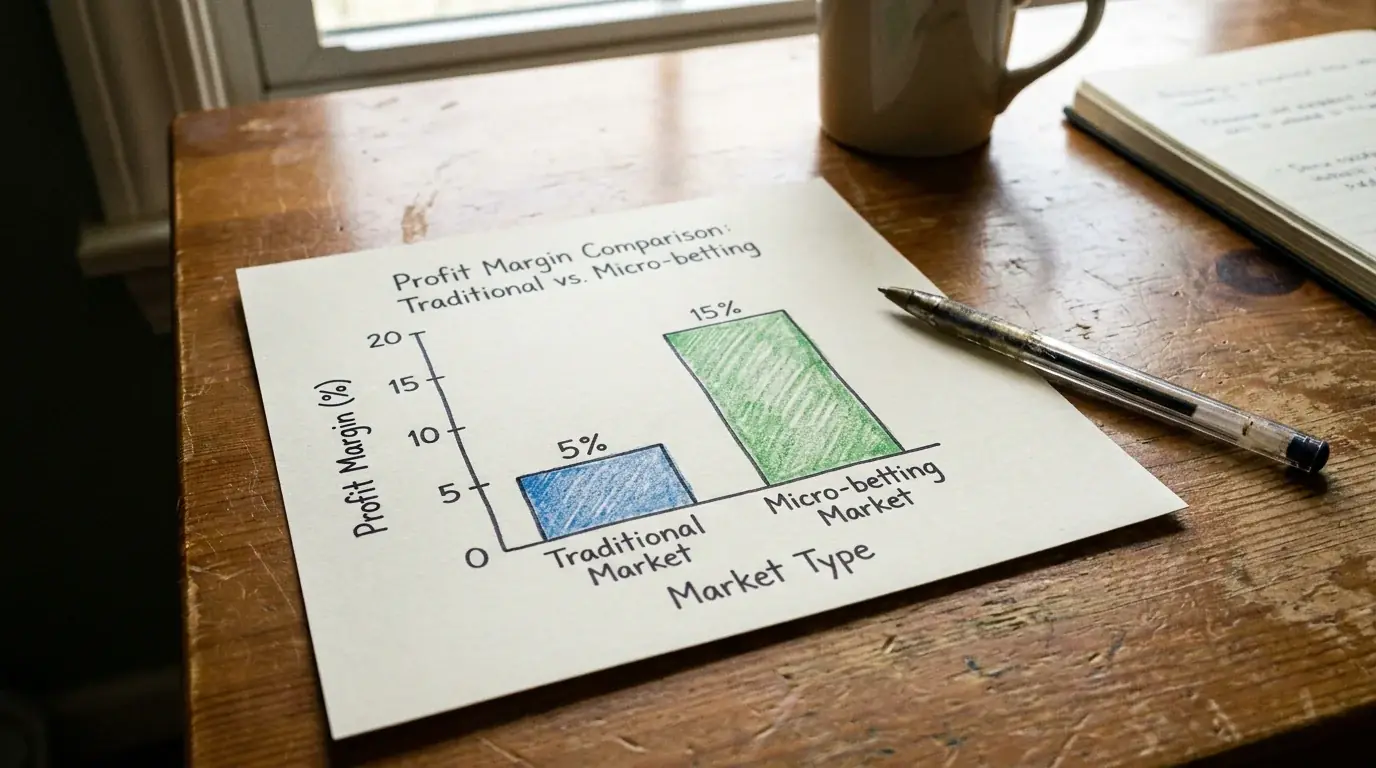 Profit Margin Comparison:
Traditional vs. Micro-betting
20
15
10
5
0
Profit Margin (%)
5%
15%
Traditional
Market
Micro-betting
Market
Market Type